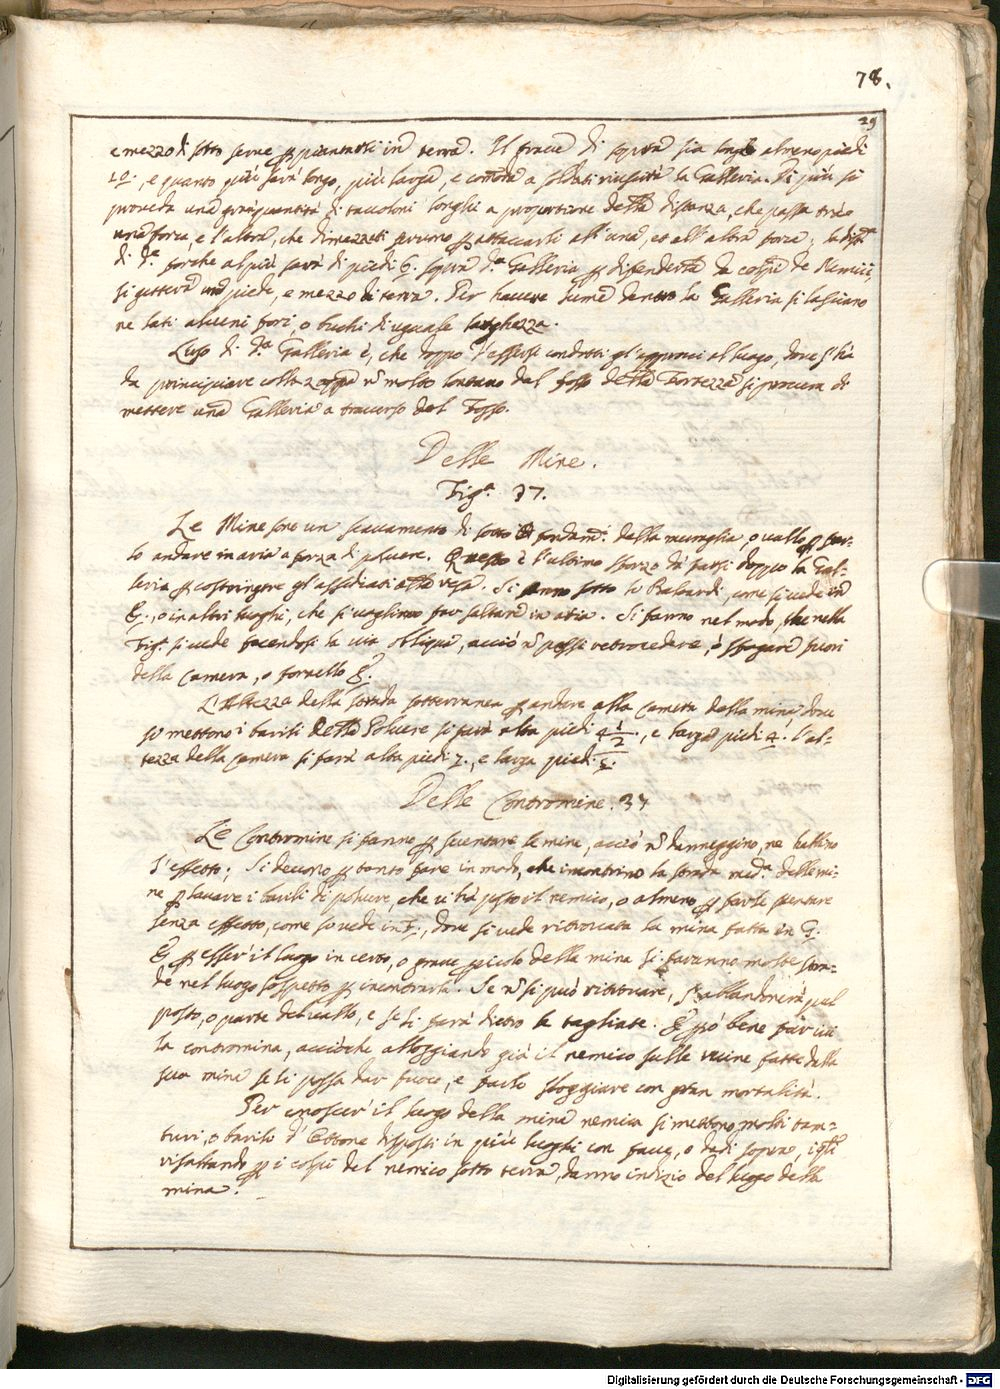 78.
29
e mezzo di sotto serve p piantarsi in terra. Il traue di sopra sia longo almeno piedi
10., e quanto più sarà longo, più larga, e comoda a soldati riuscirà la Galleria. Di più si
proueda una gran quantità di tauoloni longhi a proportione della distanza, che passa tra
una forca, e l'altra, che dimezzati seruono p attaccarli all'una, et all'altra forca; la dist.ª
di d.ª forche al più sarà di piedi 6. sopra d.ª Galleria p difenderla da colpi de Nemici,
si gettera un piede, e mezzo di terra. Per hauere lume dentro la Galleria si lasciano
ne lati alcuni fori, o buchi di uguale larghezza.
L'uso di d.ª Galleria è, che doppo l'essersi condotti gl'approci al luogo, doue s'hà
da principiare colla zappa nō molto lontano dal fosso della Fortezza si procura di
mettere una Galleria a trauerso del Fosso.
Delle Mine.
Fig.ª 37.
Le Mine sono un scauamento di sotto fondam.ti della muraglia, o uallo p far-
lo andare in aria a forza di poluere. Questo è l'ultimo sforzo da farsi doppo la Gal-
leria p costringere gl'assediati alla resa. Si fanno sotto li Baloardi, come si uede in
E., o in altri luoghi, che si uogliono far saltare in aria. Si fanno nel modo, che nella
Fig.ª si uede facendosi la uia obliqua, acciò nō possi retrocedere, o sfogare fuori
della camera, o fornello E.
L'Altezza della strada sotterranea p andare alla camera della mina doue
si mettono i barili della Poluere si farà alta piedi 4 1/2., e larga piedi 4. l'al-
tezza della camera si farà alta piedi 7., e larga piedi 5.
Delle Contromine. 37
Le Contromine si fanno p suentare le mine, acciò nō danneggino, ne habbino
l'effetto; Si deuono p tanto fare in modo, che incontrino la strada med.ª delle mi-
ne p leuare i barili di poluere, che ui hà posto il nemico, o almeno p farle suentare
senza effetto, come si uede in F., doue si uede ritrouata la mina fatta in G.
E p esser il luogo incerto, o graue pericolo della mina si faranno molte stra-
de nel luogo sospetto p incontrarla. Se nō si può ritrouare, s'abbandonerà quel
posto, o parte del uallo, e se li farà dietro le tagliate. E però bene far iui
la contromina, acciòche alloggiando già il nemico sulle ruine fatte dalla
sua mina se li possa dar fuoco, e farlo sloggiare con gran mortalità.
Per conoscer il luogo della mina nemica si mettono molti tam-
buri, o barili d'Ottone disposti in più luoghi con faue, o dadi sopra, i q.li
risaltando p i colpi del nemico sotto terra, danno indizio del luogo della
mina.
Digitalisierung gefördert durch die Deutsche Forschungsgemeinschaft - DFG